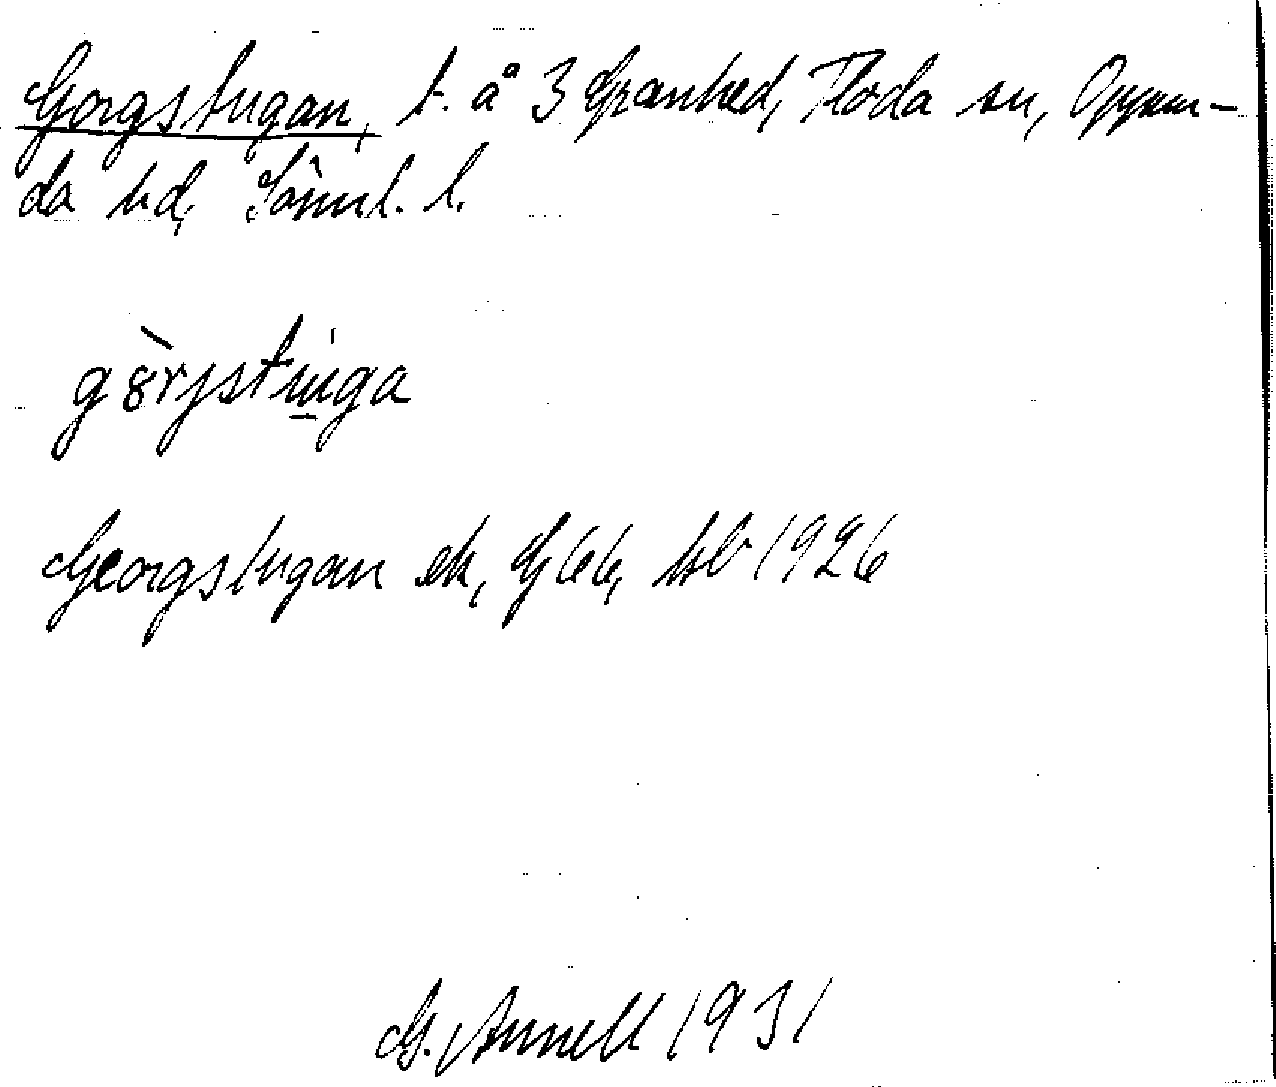 Gorgstugan, t. å 3 Granhed, Floda sn, Oppun-
da hd, Söml. l.
gȍrjstuga
Georgstugan ek, Gj 66, hb 1926
G. Annell 1931